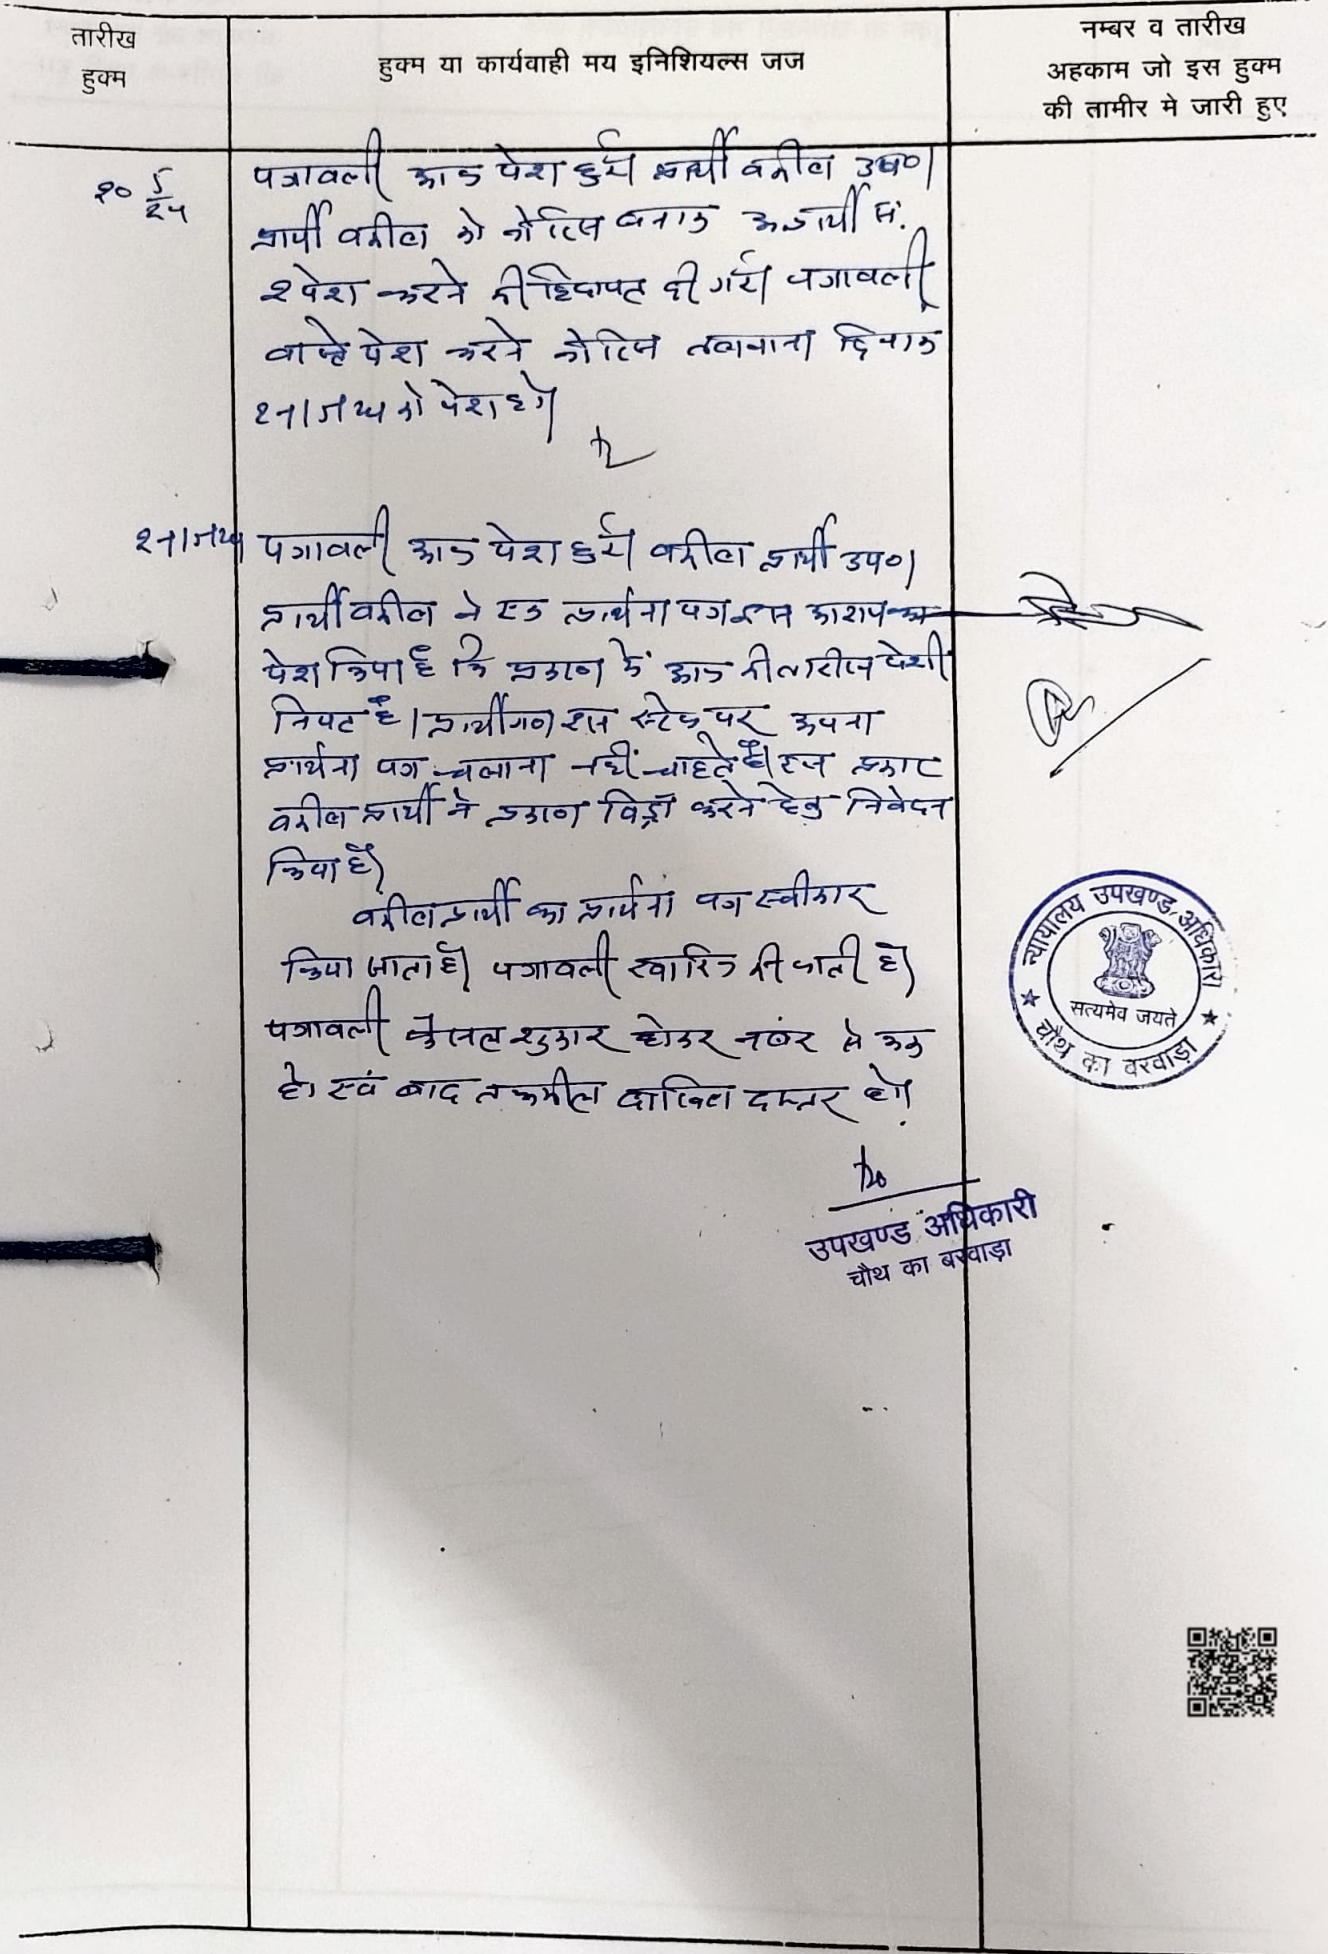 तारीख
हुक्म
हुक्म या कार्यवाही मय इनिशियल्स जज
नम्बर व तारीख
अहकाम जो इस हुक्म
की तामीर मे जारी हुए
२० 5/24
पत्रावली आज पेश हुई। प्रार्थी वकील उप०।
प्रार्थी वकील को नोटिस बनाम अप्रार्थी सं.
२ पेश करने की हिदायत दी गई। पत्रावली
वास्ते पेश करने नोटिस तलवाना दिनांक
को पेश हो।
पत्रावली आज पेश हुई। वकील प्रार्थी उप०।
प्रार्थी वकील ने एक प्रार्थना पत्र इस आशय का
पेश किया है कि प्रकरण में आज की तारीख पेशी
नियत है। प्रार्थीगण इस स्टेज पर अपना
प्रार्थना पत्र चलाना नहीं चाहते है। इस प्रकार
वकील प्रार्थी ने प्रकरण विड्रॉ करने हेतु निवेदन
किया है।
वकील प्रार्थी का प्रार्थना पत्र स्वीकार
किया जाता है। पत्रावली खारिज की जाती है।
पत्रावली फैसल शुमार होकर नम्बर से कम
हो एवं बाद तकमील दाखिल दफ्तर हो।
न्यायालय उपखण्ड अधिकारी
सत्यमेव जयते
चौथ का बरवाड़ा
उपखण्ड अधिकारी
चौथ का बरवाड़ा